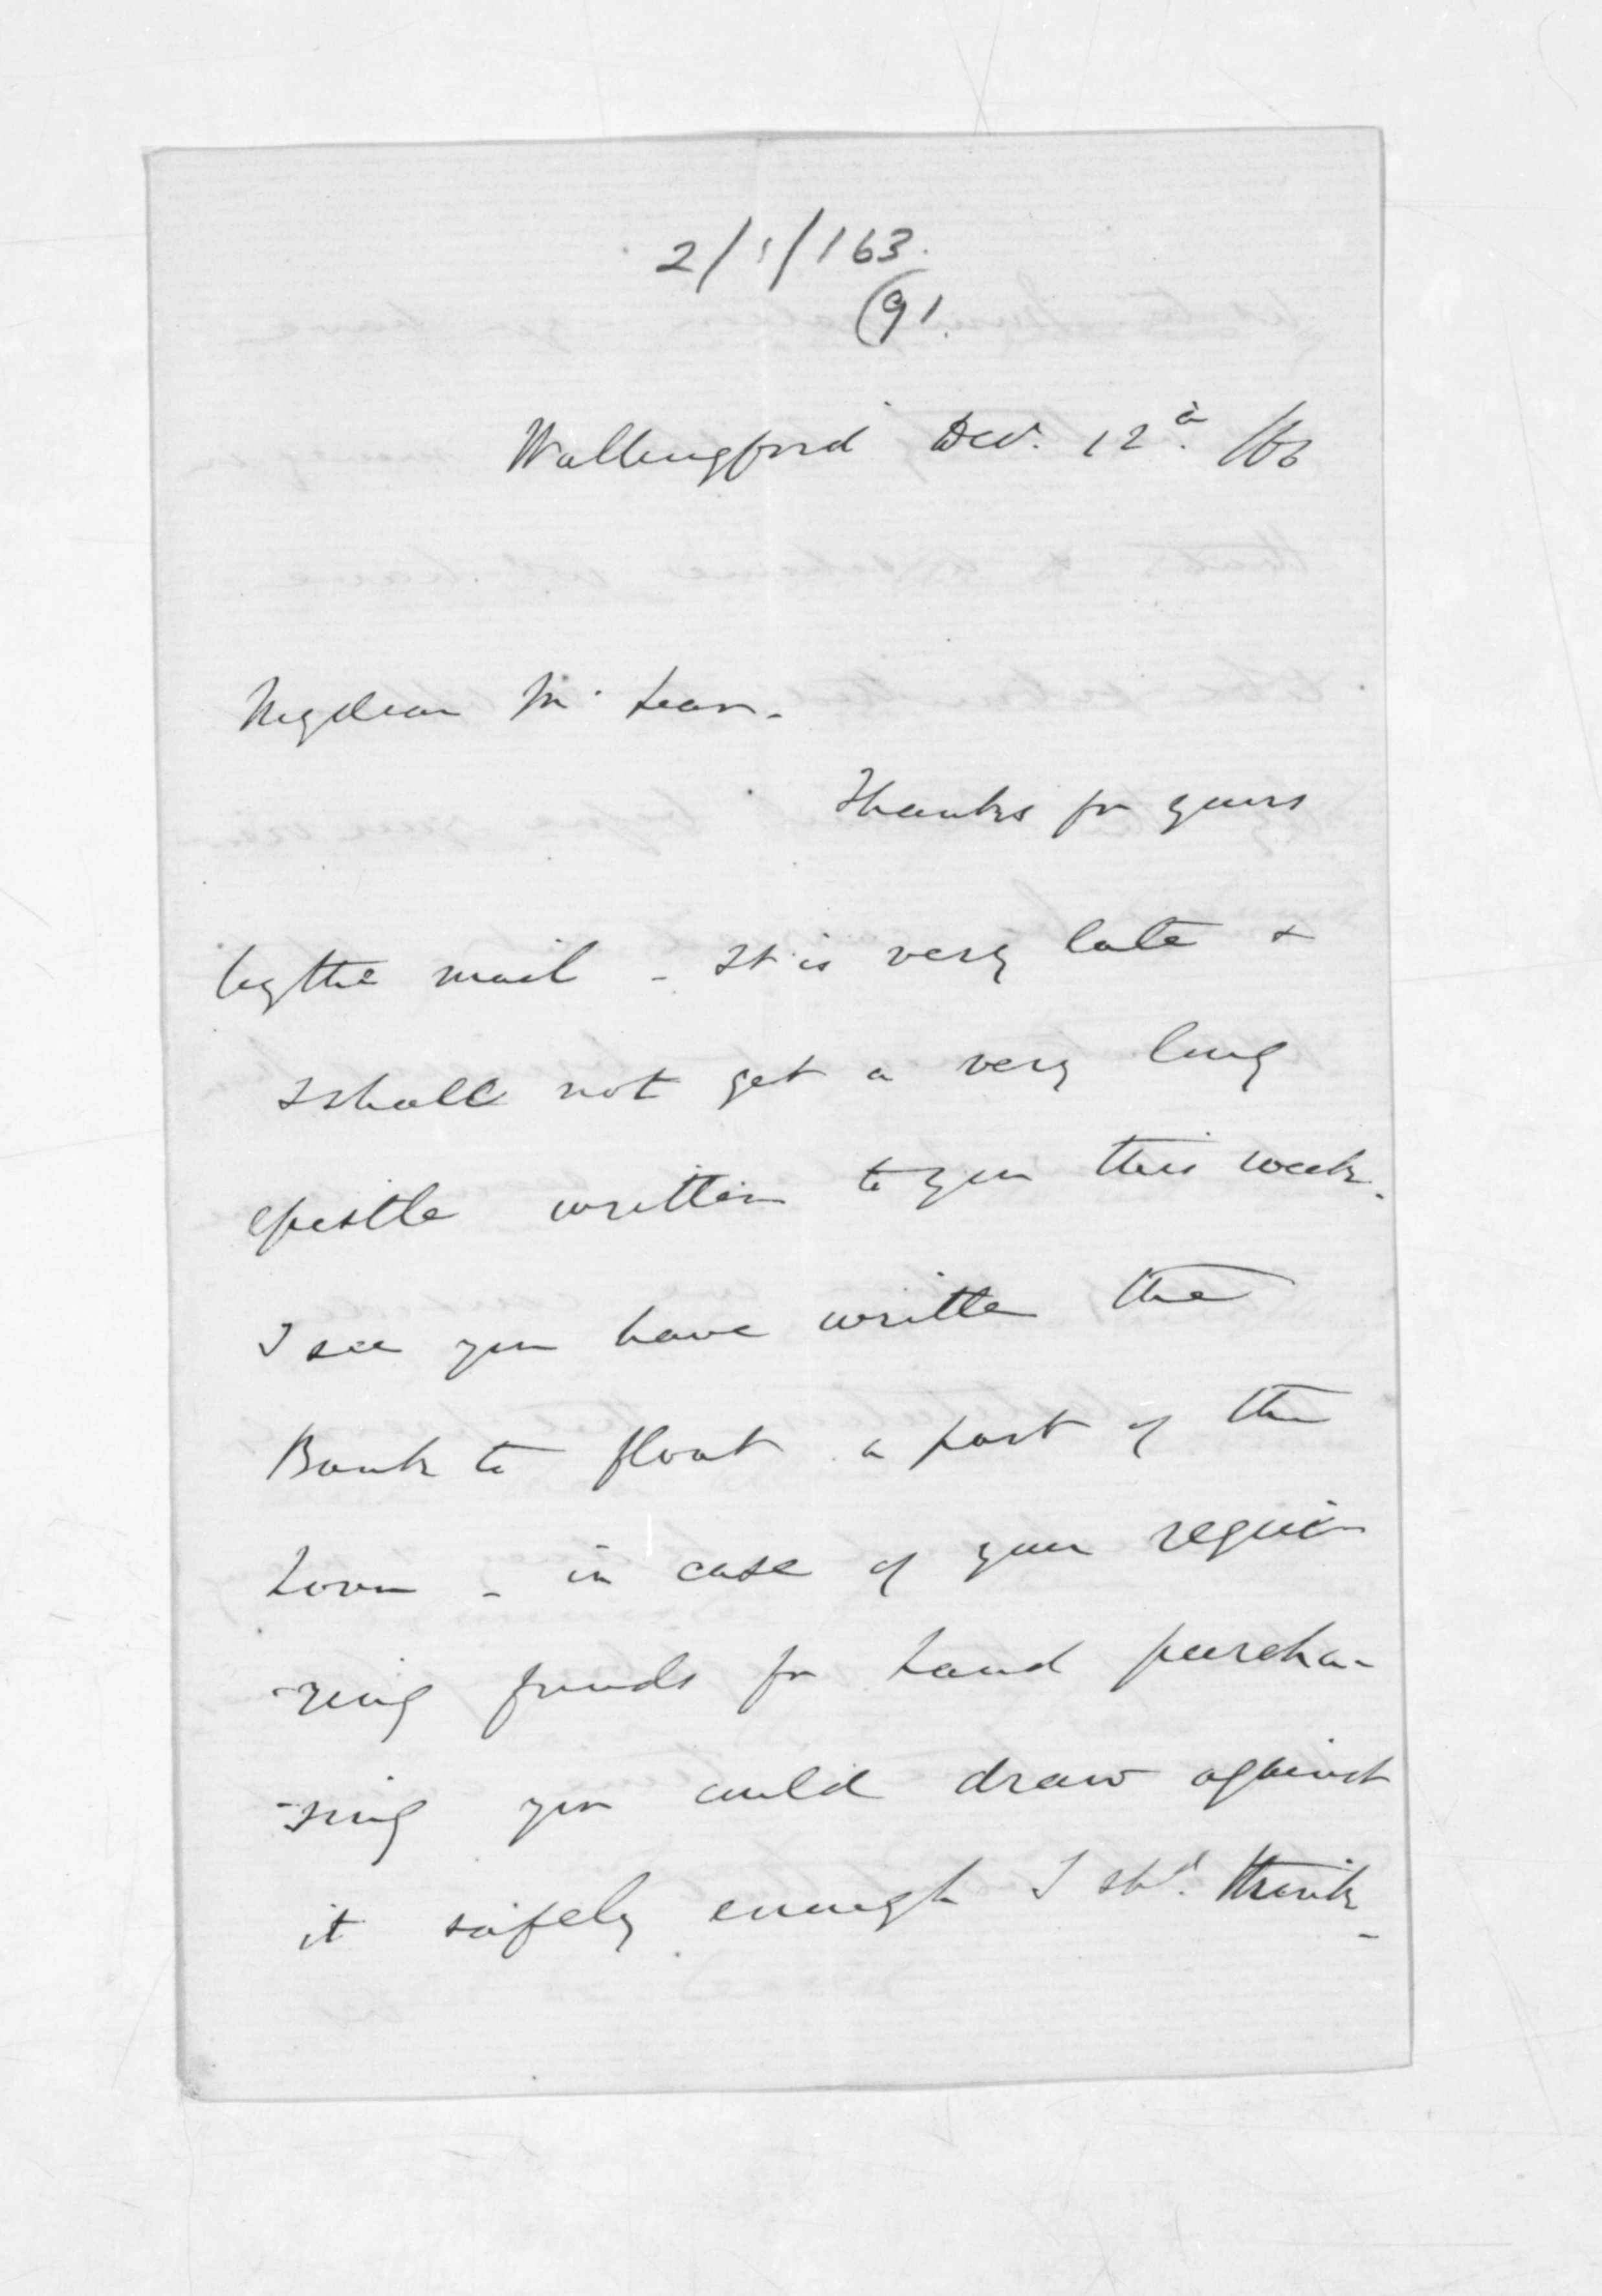 2/1/163.
(91.
Wallingford Decr. 12th. /66
My dear Mc Lean.
Thanks for yours
by the mail - It is very late &
I shall not get a very long
epistle written to you this week.
I see you have written the
Bank to float a part of the
Loan - in case of your requi
-ring funds for Land purcha-
-sing you could draw against
it safely enough I shd. think -